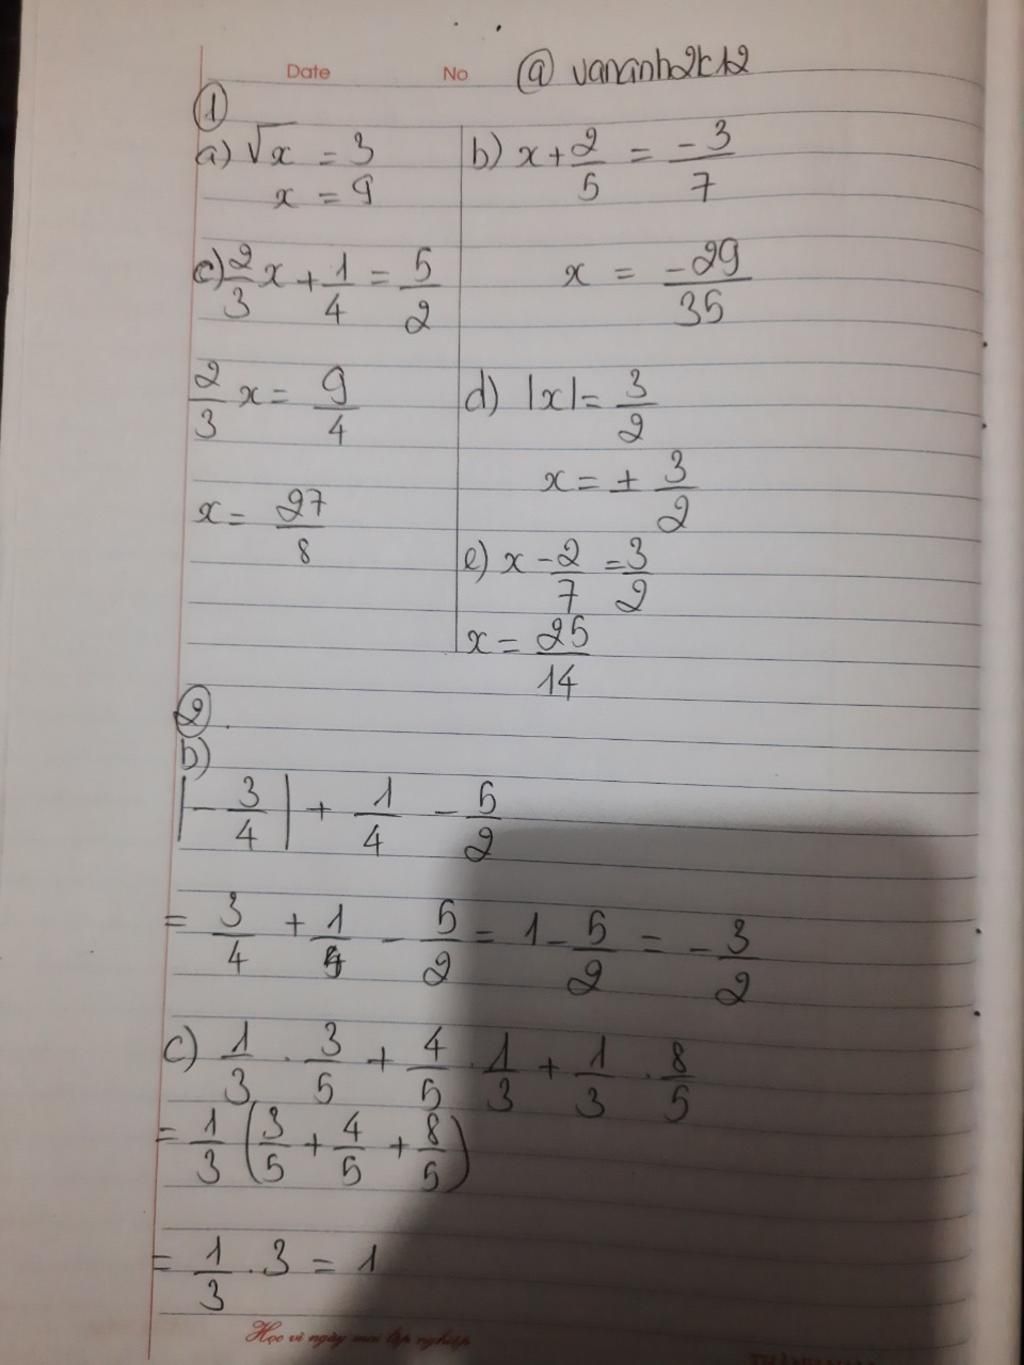 Date No @vananh2k12
①
a) √x = 3
x = 9
c) 2/3 x + 1/4 = 5/2
2/3 x = 9/4
x = 27/8
b) x + 2/5 = -3/7
x = -29/35
d) |x| = 3/2
x = ± 3/2
e) x - 2/7 = 3/2
x = 25/14
②.
b)
|- 3/4| + 1/4 - 5/2
= 3/4 + 1/4 - 5/2 = 1 - 5/2 = - 3/2
c) 1/3 . 3/5 + 4/5 . 1/3 + 1/3 . 8/5
= 1/3 (3/5 + 4/5 + 8/5)
= 1/3 . 3 = 1
Học vì ngày mai lập nghiệp